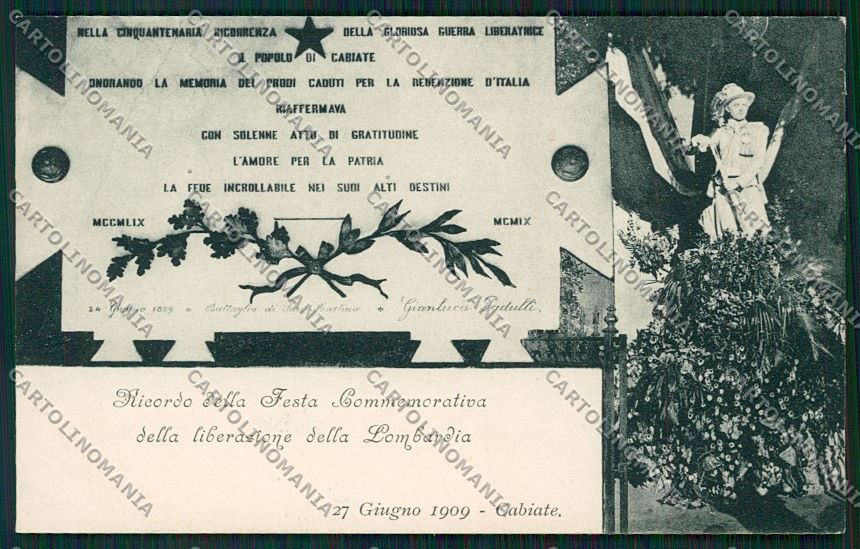 NELLA CINQUANTENARIA RICORRENZA DELLA GLORIOSA GUERRA LIBERATRICE
IL POPOLO DI CABIATE
ONORANDO LA MEMORIA DEI PRODI CADUTI PER LA REDENZIONE D'ITALIA
RIAFFERMAVA
CON SOLENNE ATTO DI GRATITUDINE
L'AMORE PER LA PATRIA
LA FEDE INCROLLABILE NEI SUOI ALTI DESTINI
MCCMLIX MCMIX
24 Giugno 1859 Battaglia di San Martino Gianluca Padulli.
Ricordo della Festa Commemorativa
della liberazione della Lombardia
27 Giugno 1909 - Cabiate.
CARTOLINOMANIA